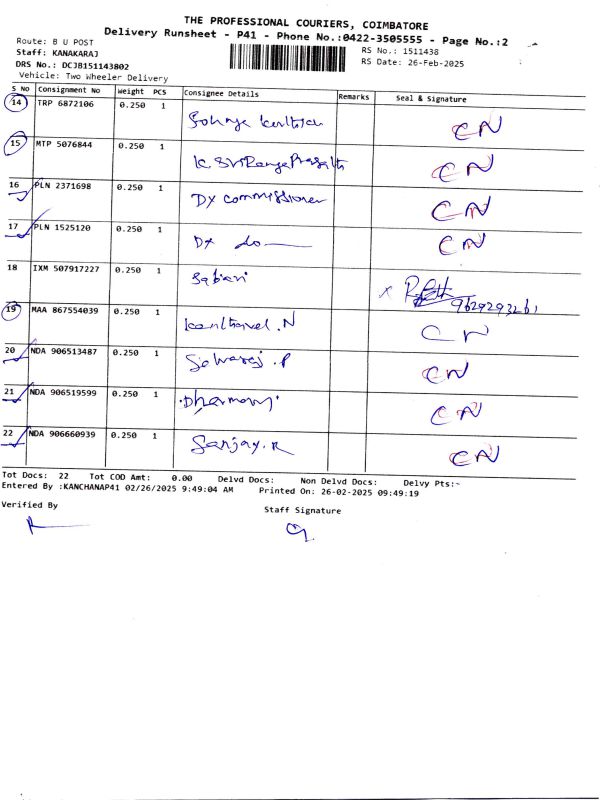 THE PROFESSIONAL COURIERS, COIMBATORE
Delivery Runsheet - P41 - Phone No.:0422-3505555 - Page No.:2
Route: B U POST
Staff: KANAKARAJ
RS No.: 1511438
DRS No.: DCJB151143802
RS Date: 26-Feb-2025
Vehicle: Two Wheeler Delivery
S No Consignment No Weight PCS Consignee Details Remarks Seal & Signature
14 TRP 6872106 0.250 1 CN
15 MTP 5076844 0.250 1 K CN
16 PLN 2371698 0.250 1 Dy commissioner CN
17 PLN 1525120 0.250 1 do CN
18 IXM 507917227 0.250 1 x 9629293261
19 MAA 867554039 0.250 1 N CN
20 NDA 906513487 0.250 1 Selvaraj .P CN
21 NDA 906519599 0.250 1 CN
22 NDA 906660939 0.250 1 Sanjay.R CN
Tot Docs: 22 Tot COD Amt: 0.00 Delvd Docs: Non Delvd Docs: Delvy Pts:-
Entered By :KANCHANAP41 02/26/2025 9:49:04 AM Printed On: 26-02-2025 09:49:19
Verified By
Staff Signature